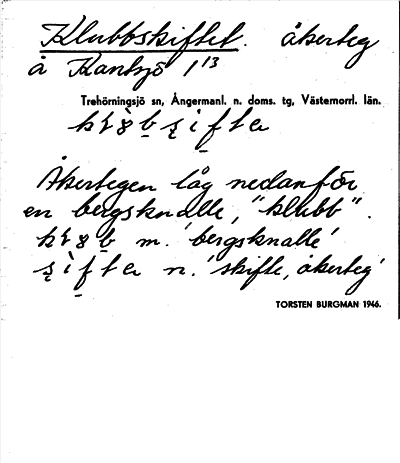 Klubbskiftet. åkerteg
å Kantsjö 1¹³
Trehörningsjö sn, Ångermanl. n. doms. tg, Västernorrl. län.
Åkertegen låg nedanför
en bergsknalle, "klubb".
m. 'bergsknalle'
n. 'skifte, åkerteg'
TORSTEN BURGMAN 1946.